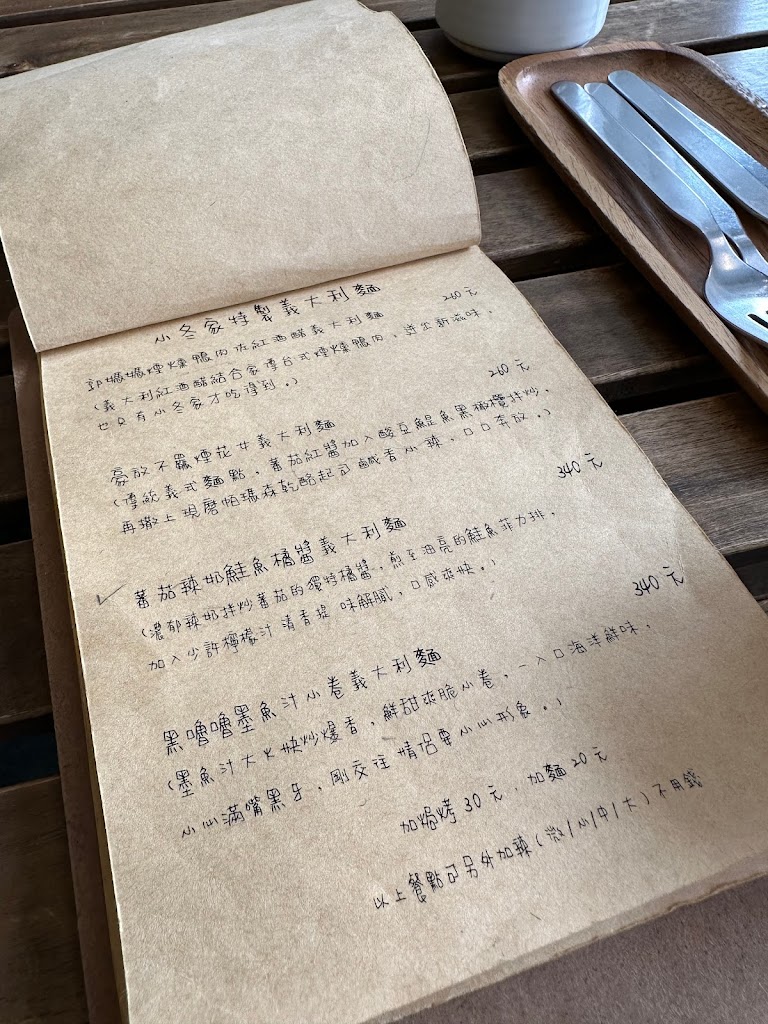 小冬家特製義大利麵
郭媽媽煙燻鴨肉佐紅酒醋義大利麵 260元
(義大利紅酒醋結合家傳台式煙燻鴨肉，迸出新滋味，
也只有小冬家才吃得到。)
豪放不羈煙花女義大利麵 260元
(傳統義式麵點，蕃茄紅醬加入酸豆鯷魚黑橄欖拌炒，
再撒上現磨帕瑪森乾酪起司鹹香小辣，口口奔放。)
蕃茄辣奶鮭魚橘醬義大利麵 340元
(濃郁辣奶拌炒蕃茄的獨特橘醬，煎至油亮的鮭魚菲力排，
加入少許檸檬汁清香提味解膩，口感爽快。)
黑嚕嚕墨魚汁小卷義大利麵 340元
(墨魚汁大火快炒爆香，鮮甜爽脆小卷，一入口海洋鮮味，
小心滿嘴黑牙，剛交往情侶要小心形象。)
加焗烤30元，加麵20元
以上餐點可另外加辣(微/小/中/大)不用錢